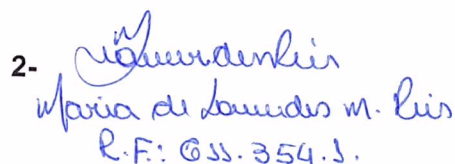 2-
Maria de Lourdes M. Reis
R.F.: 655.354.1.